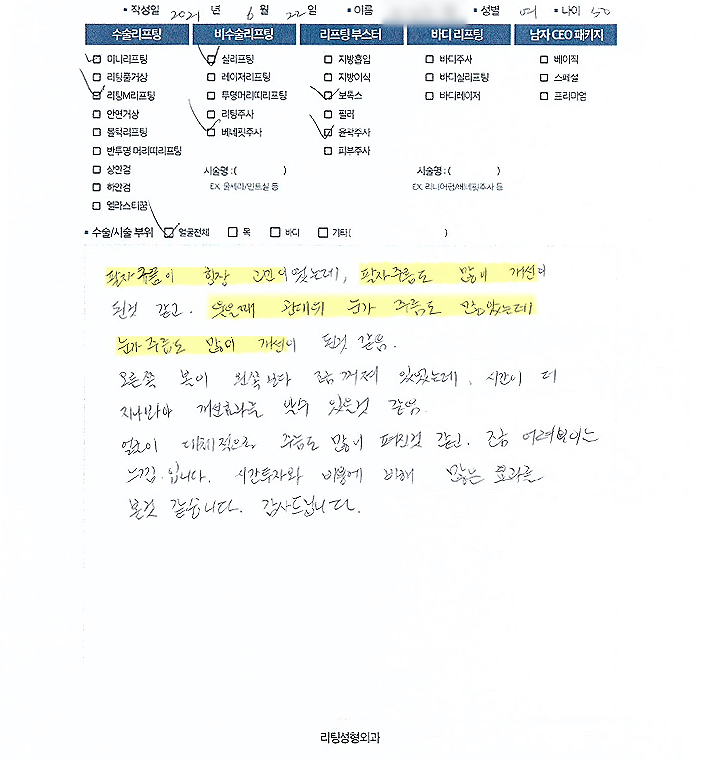 ▪ 작성일 2021 년 6 월 22 일 ▪ 이름 ▪ 성별 여 ▪ 나이 50
수술리프팅 비수술리프팅 리프팅 부스터 바디 리프팅 남자 CEO 패키지
미니리프팅 실리프팅 지방흡입 바디주사 베이직
리팅풀거상 레이저리프팅 지방이식 바디실리프팅 스페셜
리팅M리프팅 투명머리띠리프팅 보톡스 바디레이저 프리미엄
안면거상 리팅주사 필러
블럭리프팅 베네핏주사 윤곽주사
반투명 머리띠리프팅 피부주사
상안검 시술명 : ( ) 시술명 : ( )
하안검 EX. 울쎄라/민트실 등 EX. 리니어펌/베네핏주사 등
엘라스티꿈
▪ 수술/시술 부위 얼굴전체 목 바디 기타( )
팔자주름이 한창 고민이었는데, 팔자주름도 많이 개선이
된것 같고. 웃을때 광대뒤 눈가 주름도 있었는데
눈가주름도 많이 개선이 된것 같음.
오른쪽 볼이 왼쪽보다 조금 꺼져 있었는데, 시간이 더
지나봐야 개선효과를 볼수 있을것 같음.
얼굴이 대체적으로 주름도 많이 펴진것 같고. 조금 어려보이는
느낌 입니다. 시간투자와 비용에 비해 많은 효과를
본것 같습니다. 감사드립니다.
리팅성형외과